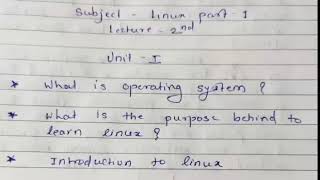 Subject - Linux part - I
Lecture - 2nd
Unit - I
* What is operating system ?
* What is the purpose behind to
learn linux ?
* Introduction to linux